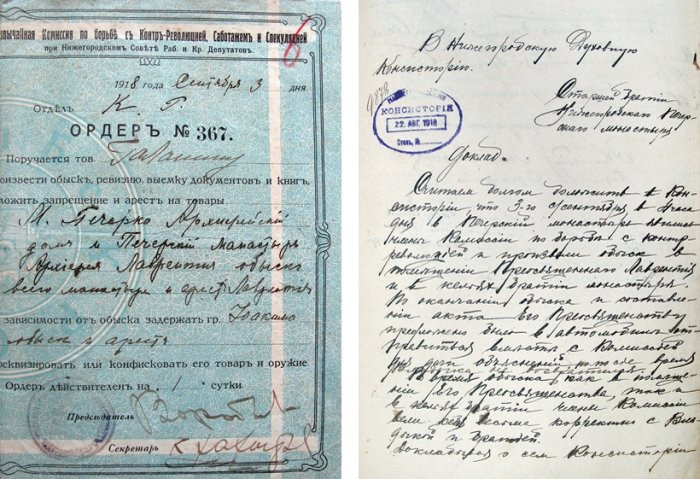 резвычайная Комиссия по борьбѣ съ Контръ-Революціей, Саботажемъ и Спекуляціей
при Нижегородскомъ Совѣтѣ Раб. и Кр. Депутатовъ.
6
1918 года Сентября 3 дня
Отдѣлъ К. Р.
ОРДЕРЪ № 367.
Поручается тов.
роизвести обыскъ, ревизію, выемку документовъ и книгъ,
ложить запрещеніе и арестъ на товары
Архіерейскій
домъ и Печерскій Манастырь
Лаврентія обыскъ
всего монастыря и арест Лаврентія
зависимости отъ обыска задержать гр.
обыскъ и арестъ
еквизировать или конфисковать его товаръ и оружіе
Ордеръ дѣйствителенъ на 1 сутки
Предсѣдатель
Секретарь
В Нижегородскую Духовную
Консисторію.
КОНСИСТОРІЯ
22 АВГ 1918
Столъ, №
Старшей братіи
Нижегородскаго Печер-
скаго монастыря
Доклад.
Считаем долгом доложить Кон-
систоріи, что 3-го сентября в
дня в Печерский монастырь явились
члены Комиссіи по борьбѣ с контр
революціей и произвели обыск в
помѣщеніи Преосвященнаго Лаврентія
и в келіях братіи монастыря.
По окончаніи обыска и составле-
ніи акта Его Преосвященству
предложено было в автомобилѣ от-
правиться вмѣстѣ с Комиссіей
для дачи объясненій
Во время обыска как в помѣще-
ніи Его Преосвященства, так и
в келіях братіи члены Комиссіи
вели себя весьма корректно с Вла-
дыкой и братіей
Докладывая о сем Консисторіи